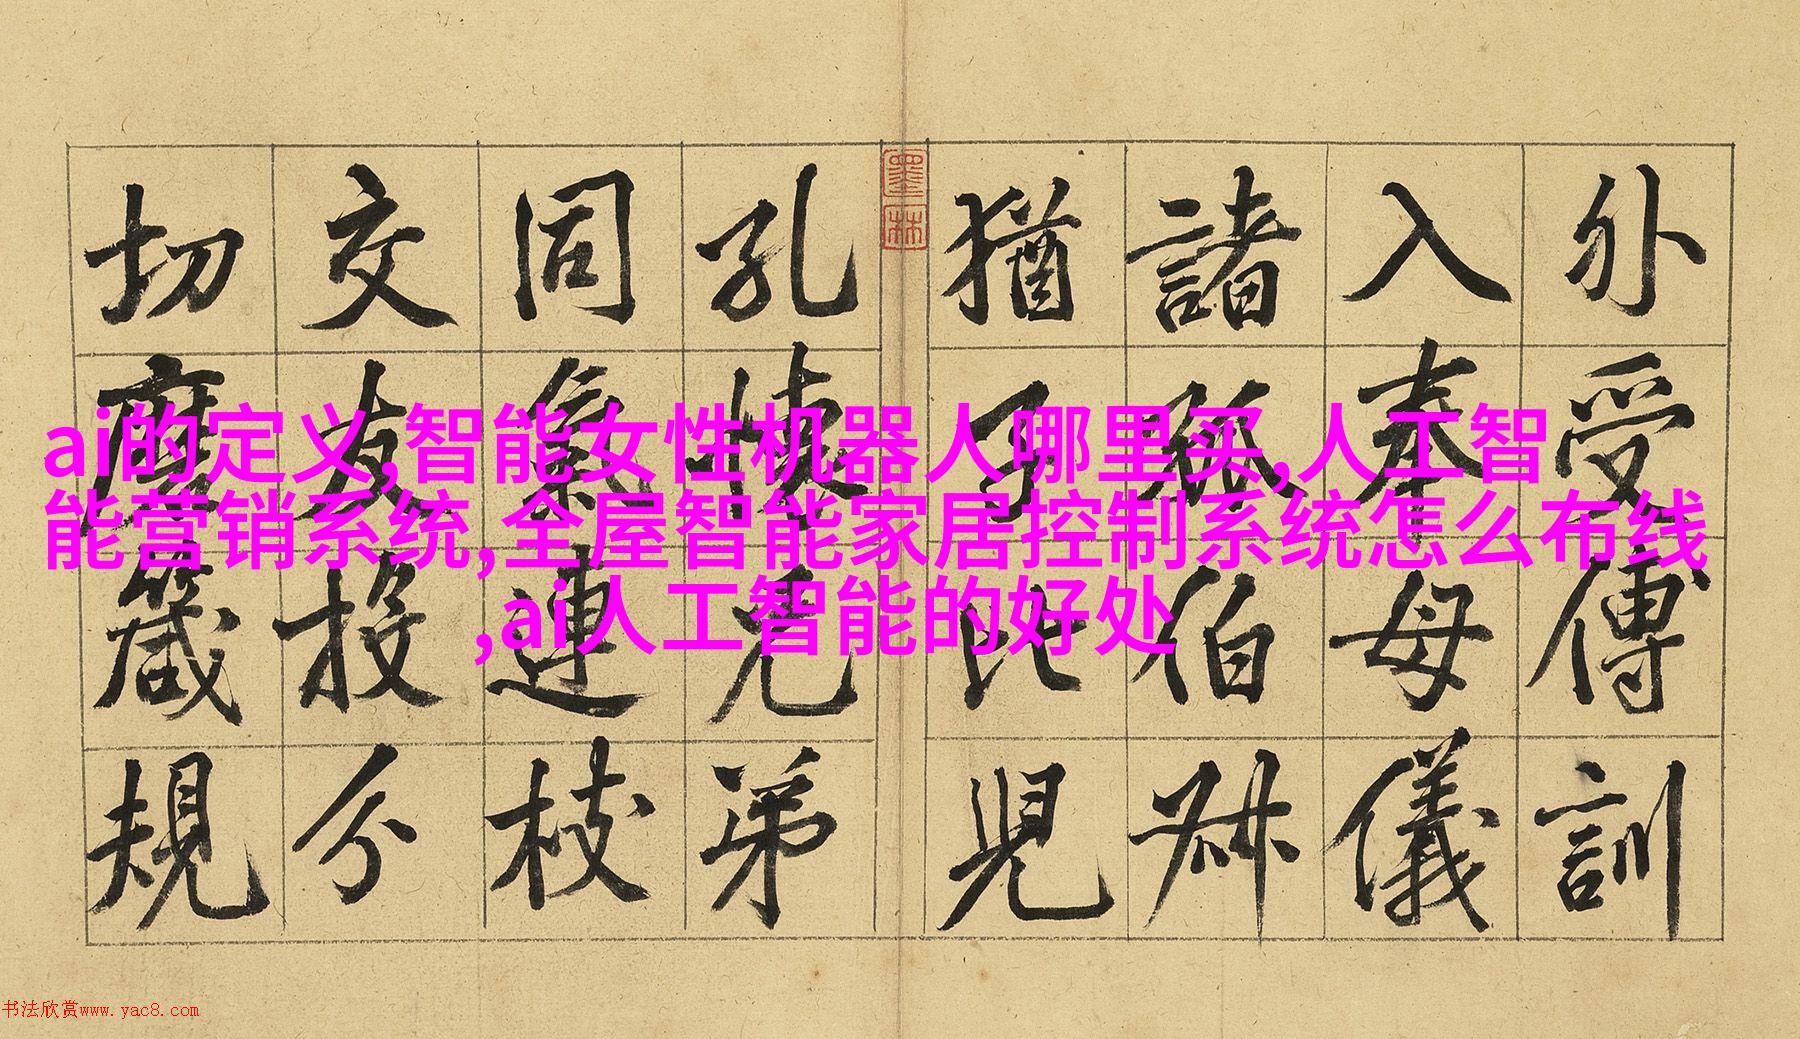 外受傅訓
入奉母儀
諸姑伯叔
猶子比兒
孔懷兄弟
同氣連枝
交友投分
切磨箴規
墨林
ai的定义,智能女性机器人哪里买,人工智
能营销系统,全屋智能家居控制系统怎么布线
,ai人工智能的好处
书法欣赏www.yac8.com